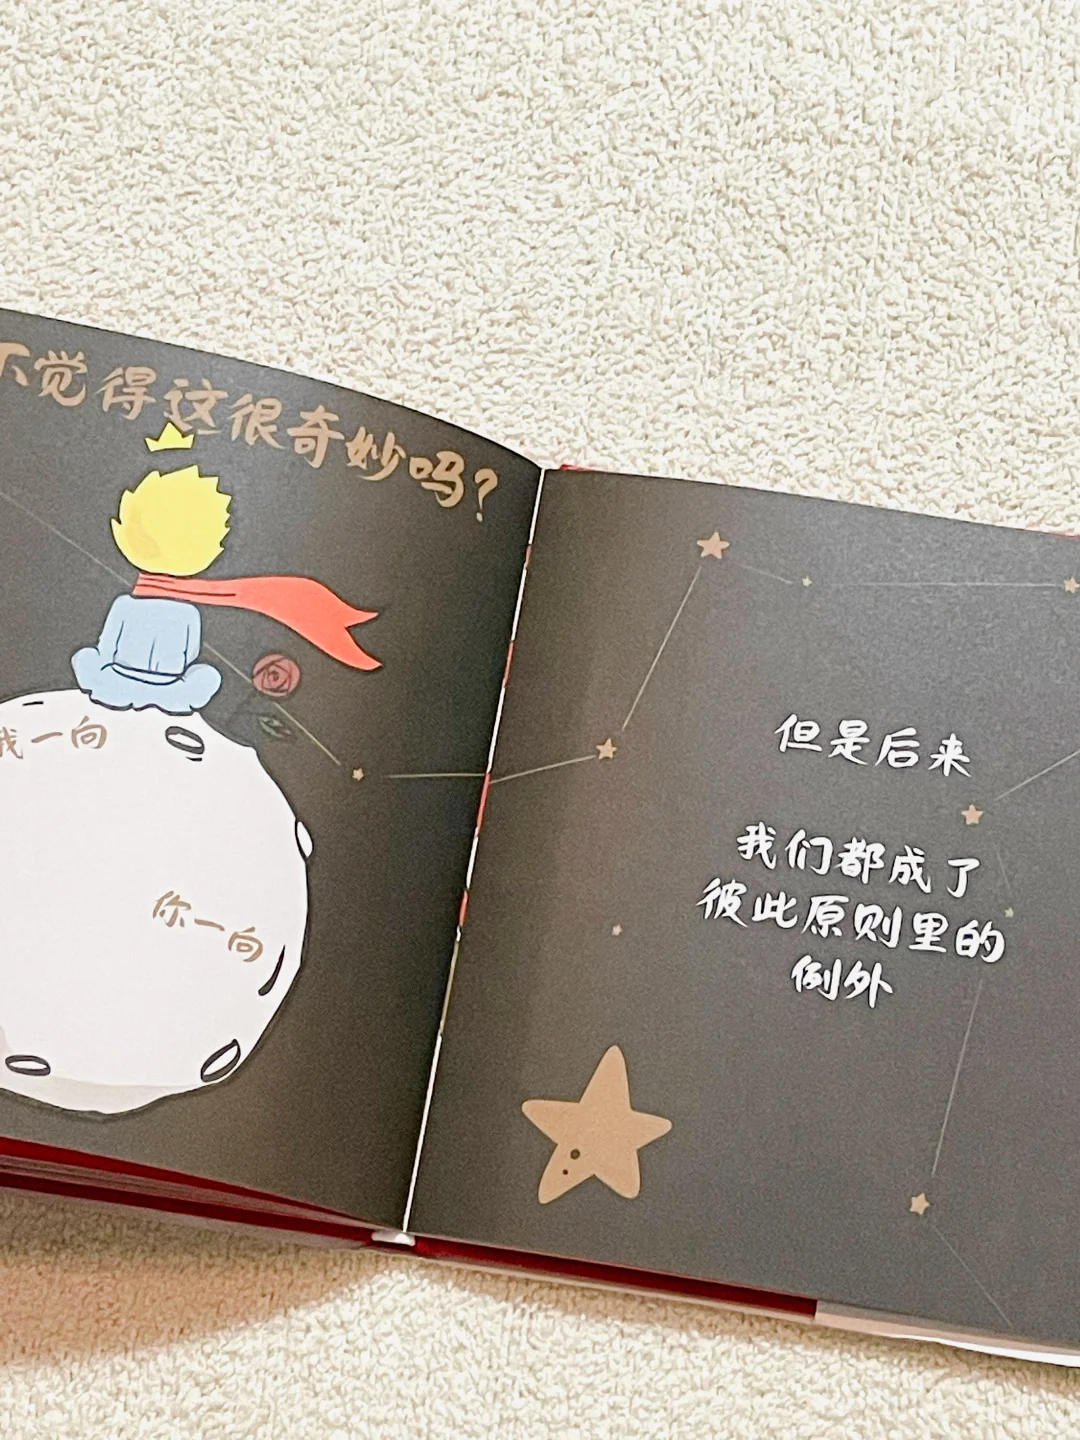 不觉得这很奇妙吗?
我一向
你一向
但是后来
我们都成了
彼此原则里的
例外